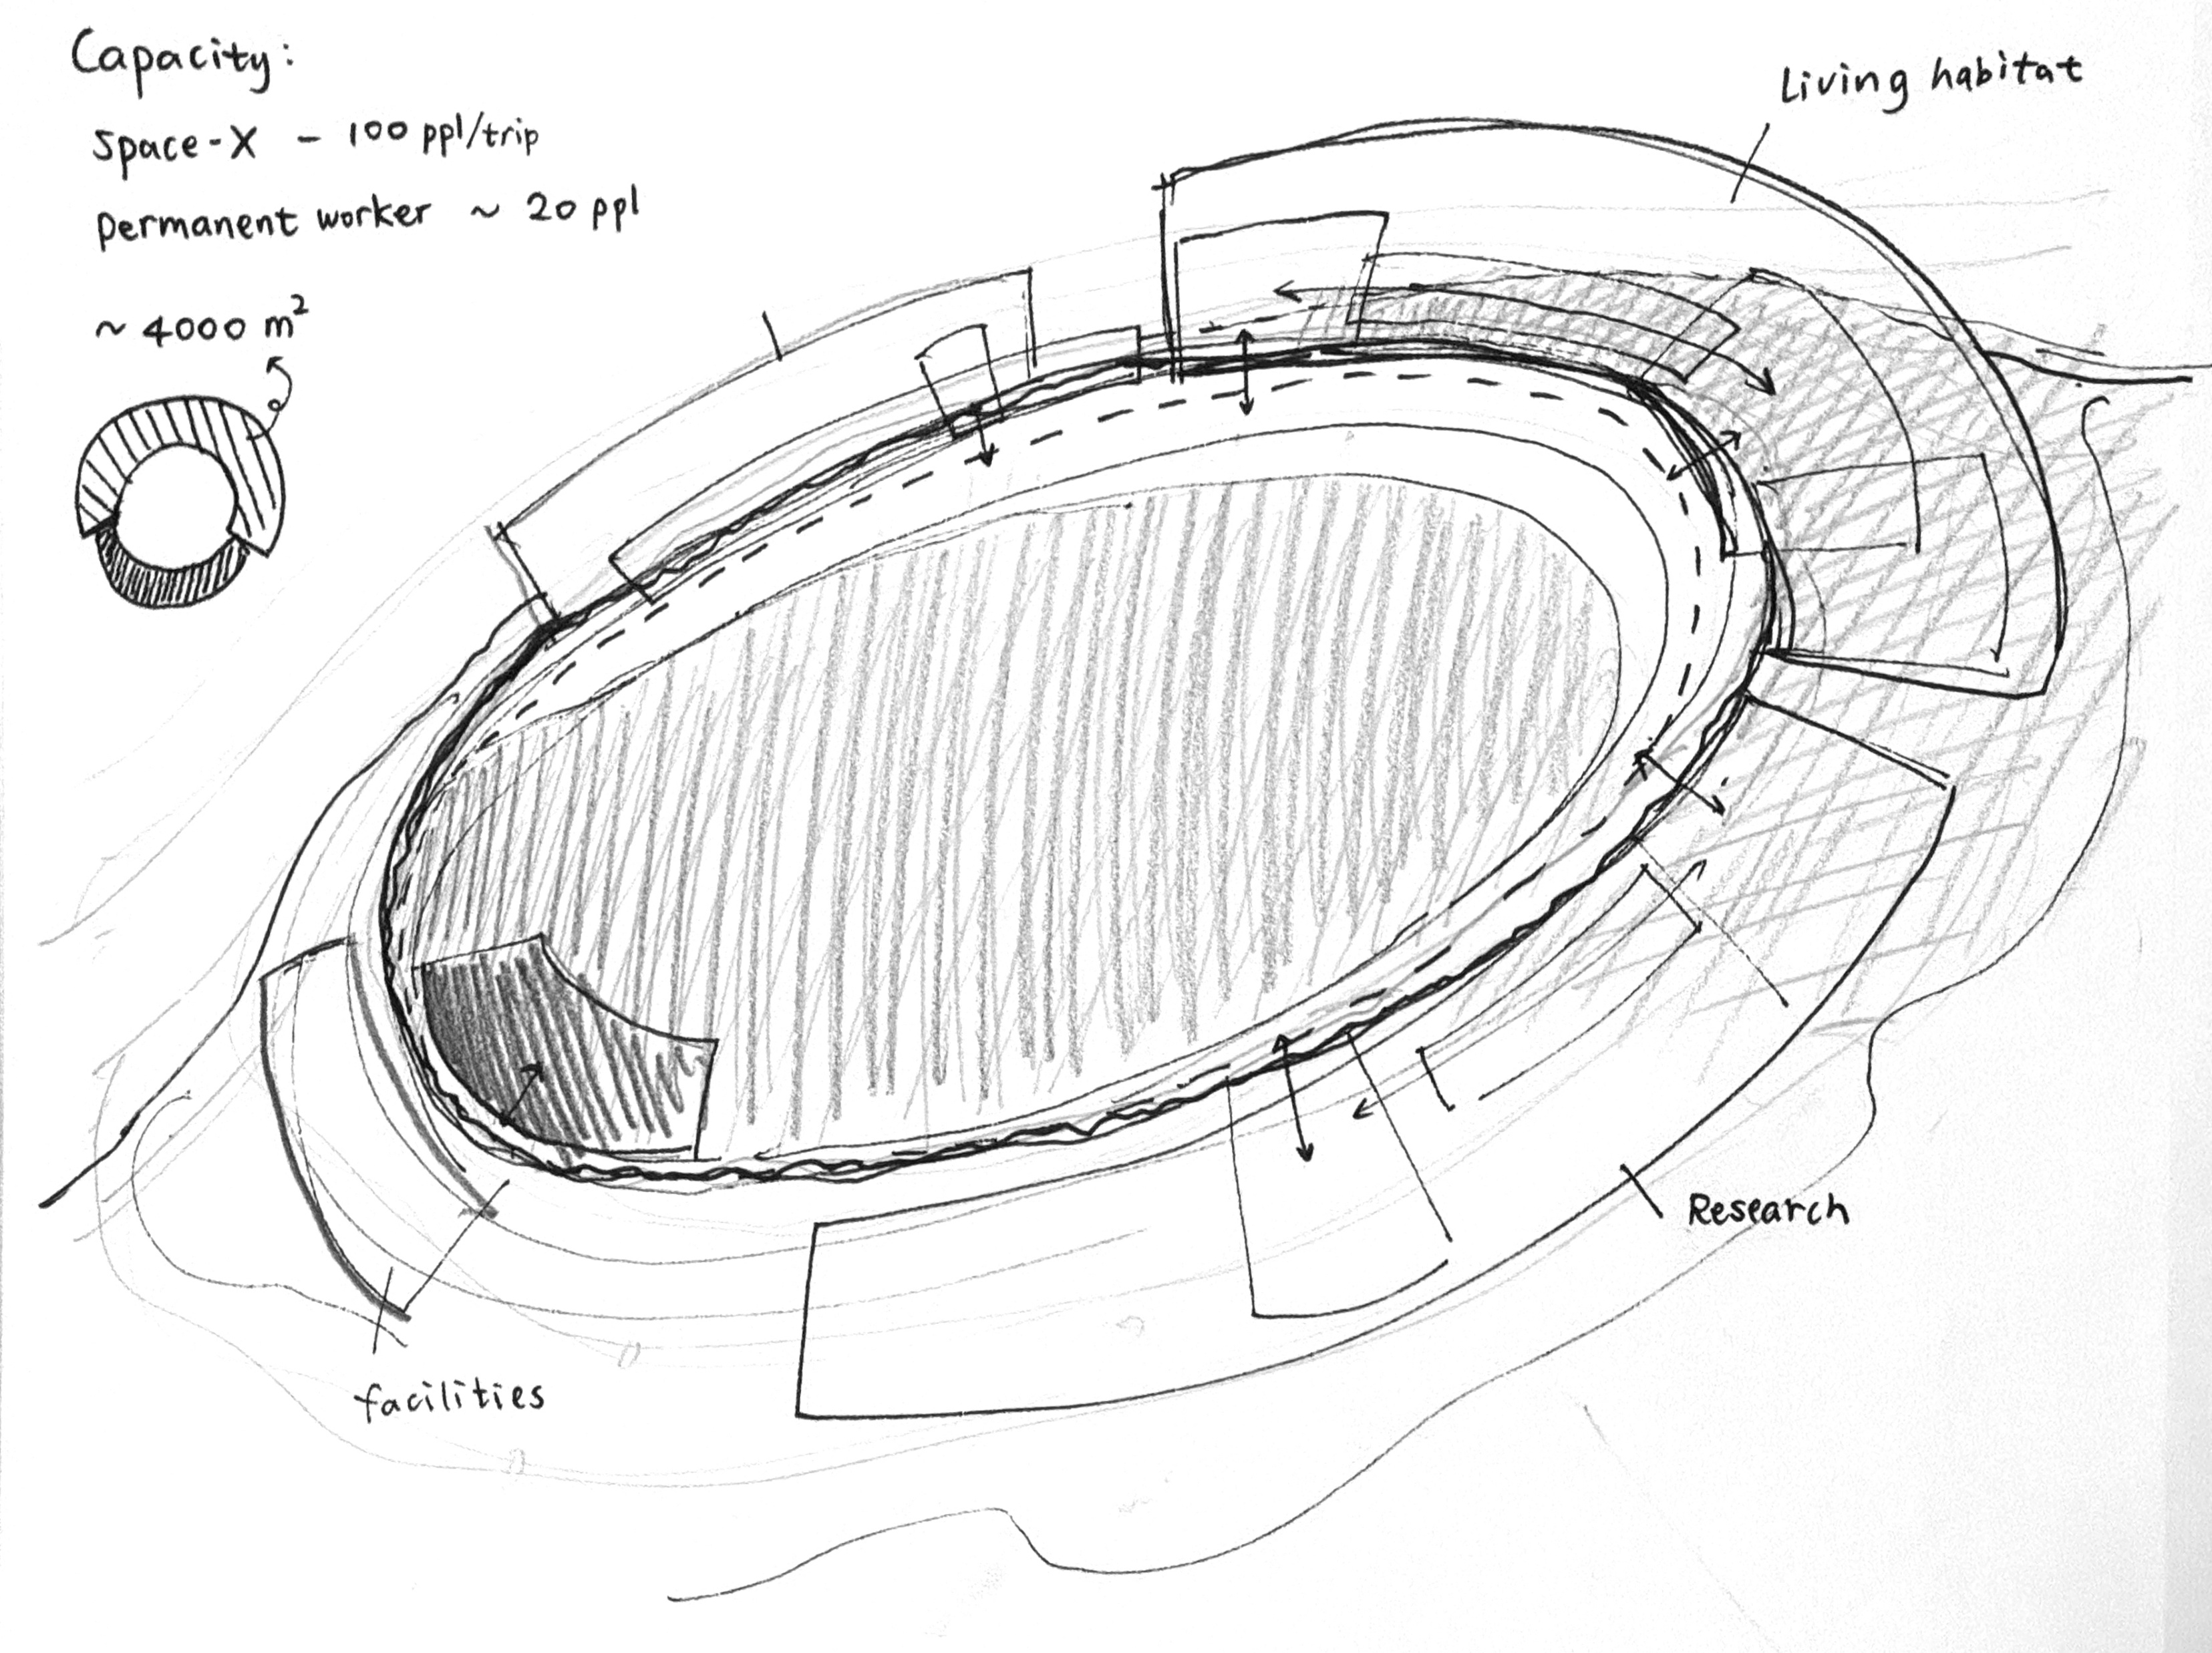 Capacity:
Space-X - 100 ppl/trip
Permanent worker ~ 20 ppl
~ 4000 m²
Living habitat
Research
facilities